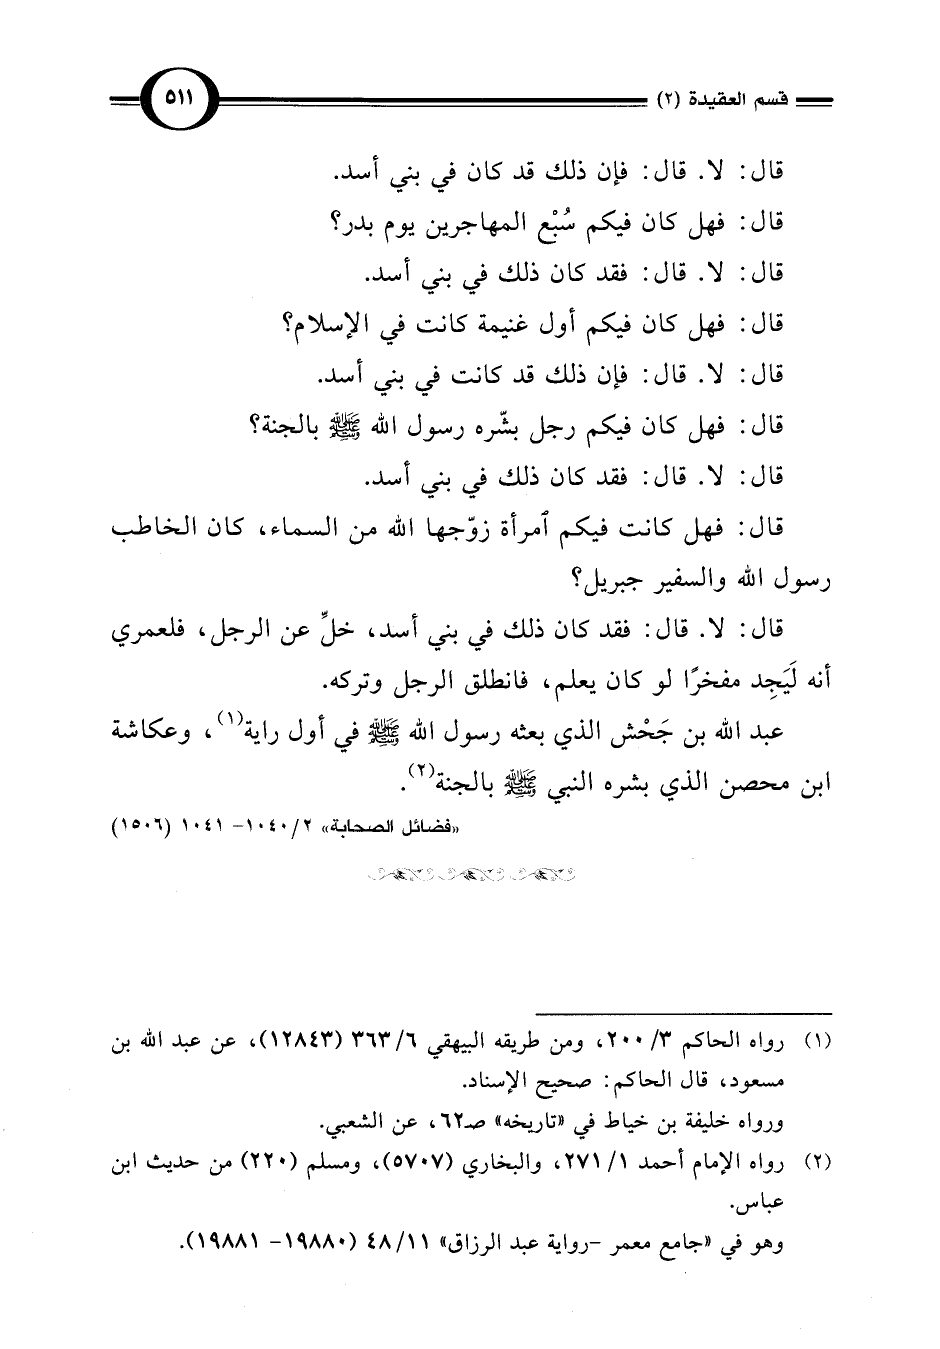 قسم العقيدة (٢) ٥١١
قال: لا. قال: فإن ذلك قد كان في بني أسد.
قال: فهل كان فيكم سُبْع المهاجرين يوم بدر؟
قال: لا. قال: فقد كان ذلك في بني أسد.
قال: فهل كان فيكم أول غنيمة كانت في الإسلام؟
قال: لا. قال: فإن ذلك قد كانت في بني أسد.
قال: فهل كان فيكم رجل بشّره رسول الله ﷺ بالجنة؟
قال: لا. قال: فقد كان ذلك في بني أسد.
قال: فهل كانت فيكم ٱمرأة زوّجها الله من السماء، كان الخاطب
رسول الله والسفير جبريل؟
قال: لا. قال: فقد كان ذلك في بني أسد، خلِّ عن الرجل، فلعمري
أنه لَيَجِد مفخرًا لو كان يعلم، فانطلق الرجل وتركه.
عبد الله بن جَحْش الذي بعثه رسول الله ﷺ في أول راية(١)، وعكاشة
ابن محصن الذي بشره النبي ﷺ بالجنة(٢).
«فضائل الصحابة» ٢/ ١٠٤٠- ١٠٤١ (١٥٠٦)
(١) رواه الحاكم ٣/ ٢٠٠، ومن طريقه البيهقي ٦/ ٣٦٣ (١٢٨٤٣)، عن عبد الله بن
مسعود، قال الحاكم: صحيح الإسناد.
ورواه خليفة بن خياط في «تاريخه» صـ٦٢، عن الشعبي.
(٢) رواه الإمام أحمد ١/ ٢٧١، والبخاري (٥٧٠٧)، ومسلم (٢٢٠) من حديث ابن
عباس.
وهو في «جامع معمر -رواية عبد الرزاق» ١١/ ٤٨ (١٩٨٨٠- ١٩٨٨١).